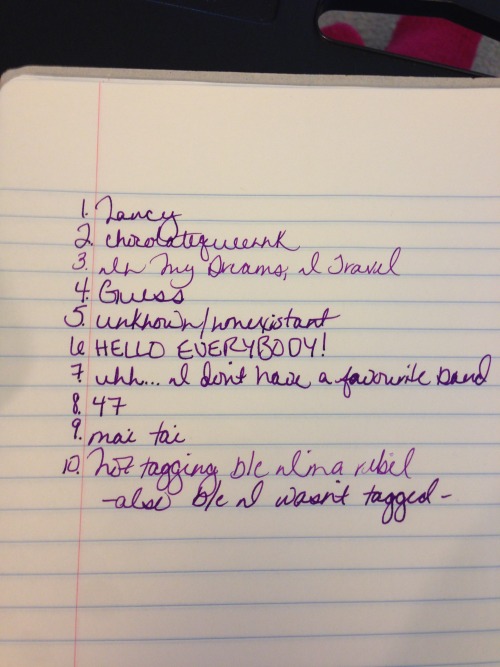 1. Nancy
2.
3. In My Dreams, I Travel
4. Guess
5. unknown/nonexistant
6. HELLO EVERYBODY!
7. uhh... I don't have a favourite band
8. 47
9. mai tai
10. Not tagging b/c I'm a rebel
-also b/c I wasn't tagged-